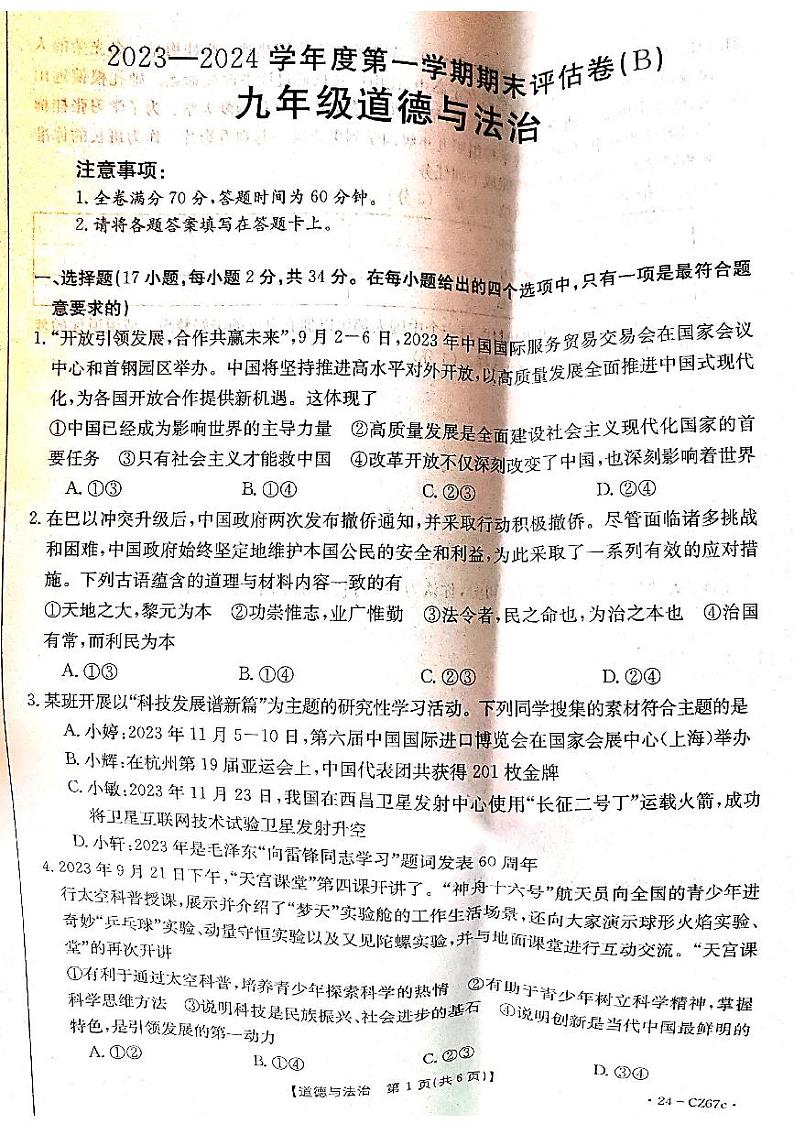 2023—2024学年度第一学期期末评估卷(B)
九年级道德与法治
注意事项:
1.全卷满分70分,答题时间为60分钟。
2.请将各题答案填写在答题卡上。
一、选择题(17小题,每小题2分,共34分。在每小题给出的四个选项中,只有一项是最符合题
意要求的)
1.“开放引领发展,合作共赢未来”,9月2-6日,2023年中国国际服务贸易交易会在国家会议
中心和首钢园区举办。中国将坚持推进高水平对外开放,以高质量发展全面推进中国式现代
化,为各国开放合作提供新机遇。这体现了
①中国已经成为影响世界的主导力量 ②高质量发展是全面建设社会主义现代化国家的首
要任务 ③只有社会主义才能救中国 ④改革开放不仅深刻改变了中国,也深刻影响着世界
A.①③ B.①④ C.②③ D.②④
2.在巴以冲突升级后,中国政府两次发布撤侨通知,并采取行动积极撤侨。尽管面临诸多挑战
和困难,中国政府始终坚定地维护本国公民的安全和利益,为此采取了一系列有效的应对措
施。下列古语蕴含的道理与材料内容一致的有
①天地之大,黎元为本 ②功崇惟志,业广惟勤 ③法令者,民之命也,为治之本也 ④治国
有常,而利民为本
A.①③ B.①④ C.②③ D.②④
3.某班开展以“科技发展谱新篇”为主题的研究性学习活动。下列同学搜集的素材符合主题的是
A.小婷:2023年11月5—10日,第六届中国国际进口博览会在国家会展中心(上海)举办
B.小辉:在杭州第19届亚运会上,中国代表团共获得201枚金牌
C.小敏:2023年11月23日,我国在西昌卫星发射中心使用“长征二号丁”运载火箭,成功
将卫星互联网技术试验卫星发射升空
D.小轩:2023年是毛泽东“向雷锋同志学习”题词发表60周年
4.2023年9月21日下午,“天宫课堂”第四课开讲了。“神舟十六号”航天员向全国的青少年进
行太空科普授课,展示并介绍了“梦天”实验舱的工作生活场景,还向大家演示球形火焰实验、
奇妙“乒乓球”实验、动量守恒实验以及又见陀螺实验,并与地面课堂进行互动交流。“天宫课
堂”的再次开讲
①有利于通过太空科普,培养青少年探索科学的热情 ②有助于青少年树立科学精神,掌握
科学思维方法 ③说明科技是民族振兴、社会进步的基石 ④说明创新是当代中国最鲜明的
特色,是引领发展的第一动力
A.①② B.①④ C.②③ D.③④
【道德与法治 第1页(共6页)】
·24-CZ67c·